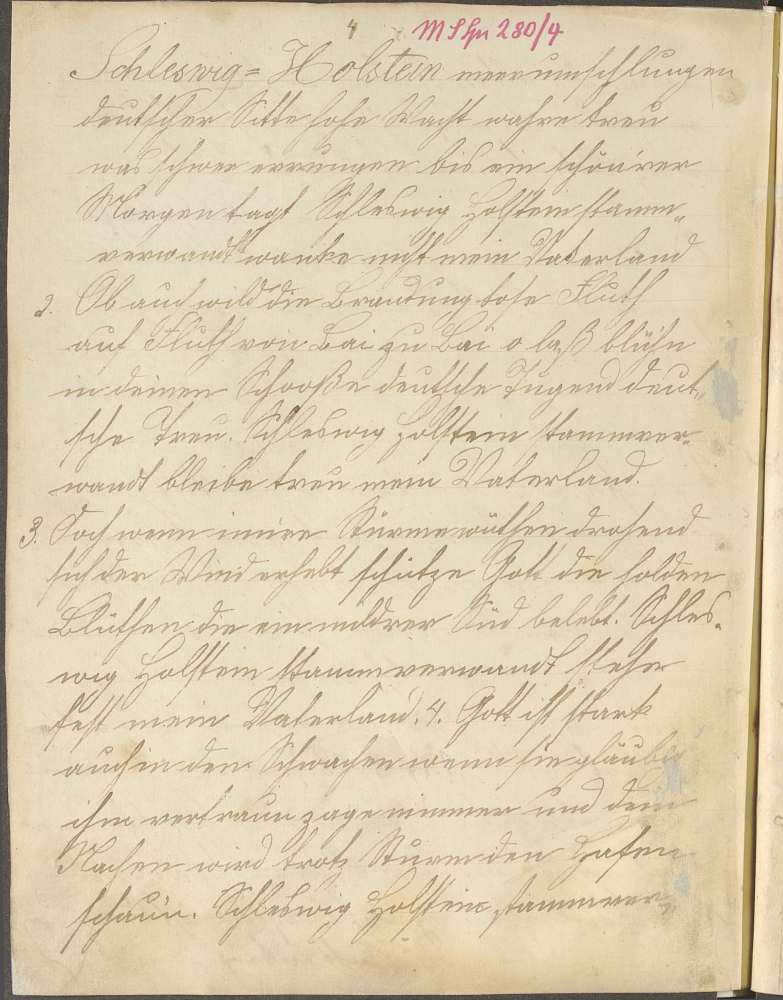 4 MS Hn 280/4
Schleswig=Holstein meerumschlungen
deutscher Sitte hohe Wacht wahre treu
was schwer errungen bis ein schön'rer
Morgen tagt Schleswig Holstein stamm„
verwandt wanke nicht mein Vaterland
2. Ob auch wild die Brandung tose Fluth
auf Fluth von Bai zu Bai o laß blühn
in deinem Schooße deutsche Tugend deut„
sche Treu. Schleswig Holstein stammver„
wandt bleibe treu mein Vaterland.
3. Doch wenn innre Stürme wüthen drohend
sich der Wind erhebt schütze Gott die holden
Blüthen die ein mildrer Süd belebt. Schles„
wig Holstein stammverwandt stehe
fest mein Vaterland. 4. Gott ist stark
auch in den Schwachen wenn sie gläubig
ihm vertraun zage nimmer und dein
Nachen wird trotz Sturm den Hafen
schaun. Schleswig Holstein stammver„